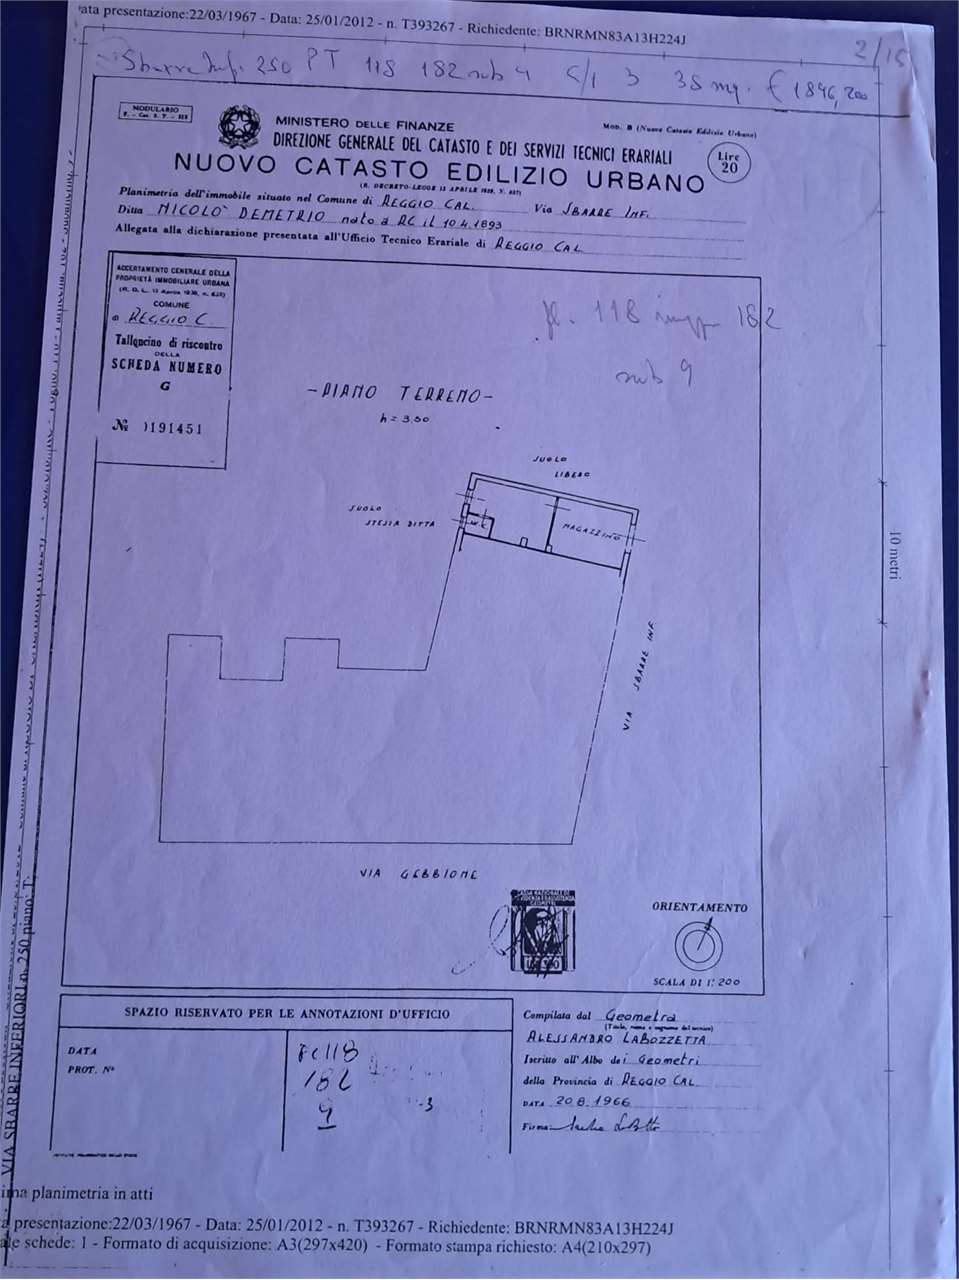 ata presentazione:22/03/1967 - Data: 25/01/2012 - n. T393267 - Richiedente: BRNRMN83A13H224J
2/15
Sbarre Inf. 250 PT 118 182 sub 9 C/1 3 38 mq. € 1896,200
MODULARIO
F. - Cat. S. T. - 315
MINISTERO DELLE FINANZE
DIREZIONE GENERALE DEL CATASTO E DEI SERVIZI TECNICI ERARIALI
NUOVO CATASTO EDILIZIO URBANO
MOD. B (Nuovo Catasto Edilizio Urbano)
Lire
20
(R. DECRETO-LEGGE 13 APRILE 1939, N. 652)
Planimetria dell'immobile situato nel Comune di REGGIO CAL. Via SBARRE INF.
Ditta NICOLO' DEMETRIO nato a RC il 10.4.1893
Allegata alla dichiarazione presentata all'Ufficio Tecnico Erariale di REGGIO CAL.
ACCERTAMENTO GENERALE DELLA
PROPRIETÀ IMMOBILIARE URBANA
(R. D. L. 13 Aprile 1939, n. 652)
COMUNE
di REGGIO C.
Talloncino di riscontro
DELLA
SCHEDA NUMERO
G
№ 0191451
fl. 118 mapp 182
sub 9
- PIANO TERRENO -
h = 3.50
SUOLO
LIBERO
SUOLO
STESSA DITTA
W.C.
MAGAZZINO
10 metri
VIA SBARRE INF.
VIA GEBBIONE
CASSA NAZIONALE DI
PREVIDENZA E ASSISTENZA
GEOMETRI
ORIENTAMENTO
SCALA DI 1: 200
SPAZIO RISERVATO PER LE ANNOTAZIONI D'UFFICIO
DATA
PROT. N°
Fc 118
182
9
Compilata dal Geometra
(Titolo, nome e cognome del tecnico)
ALESSANDRO LABOZZETTA
Iscritto all'Albo dei Geometri
della Provincia di REGGIO CAL.
DATA 20.8.1966
Firma:
VIA SBARRE INFERIORI n. 250 piano: T;
ima planimetria in atti
a presentazione:22/03/1967 - Data: 25/01/2012 - n. T393267 - Richiedente: BRNRMN83A13H224J
ale schede: 1 - Formato di acquisizione: A3(297x420) - Formato stampa richiesto: A4(210x297)